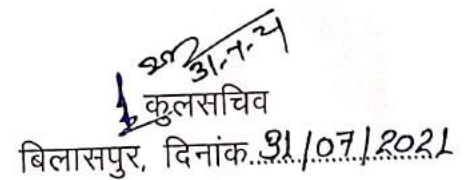 31-7-21
कुलसचिव
बिलासपुर, दिनांक..31/07/2021